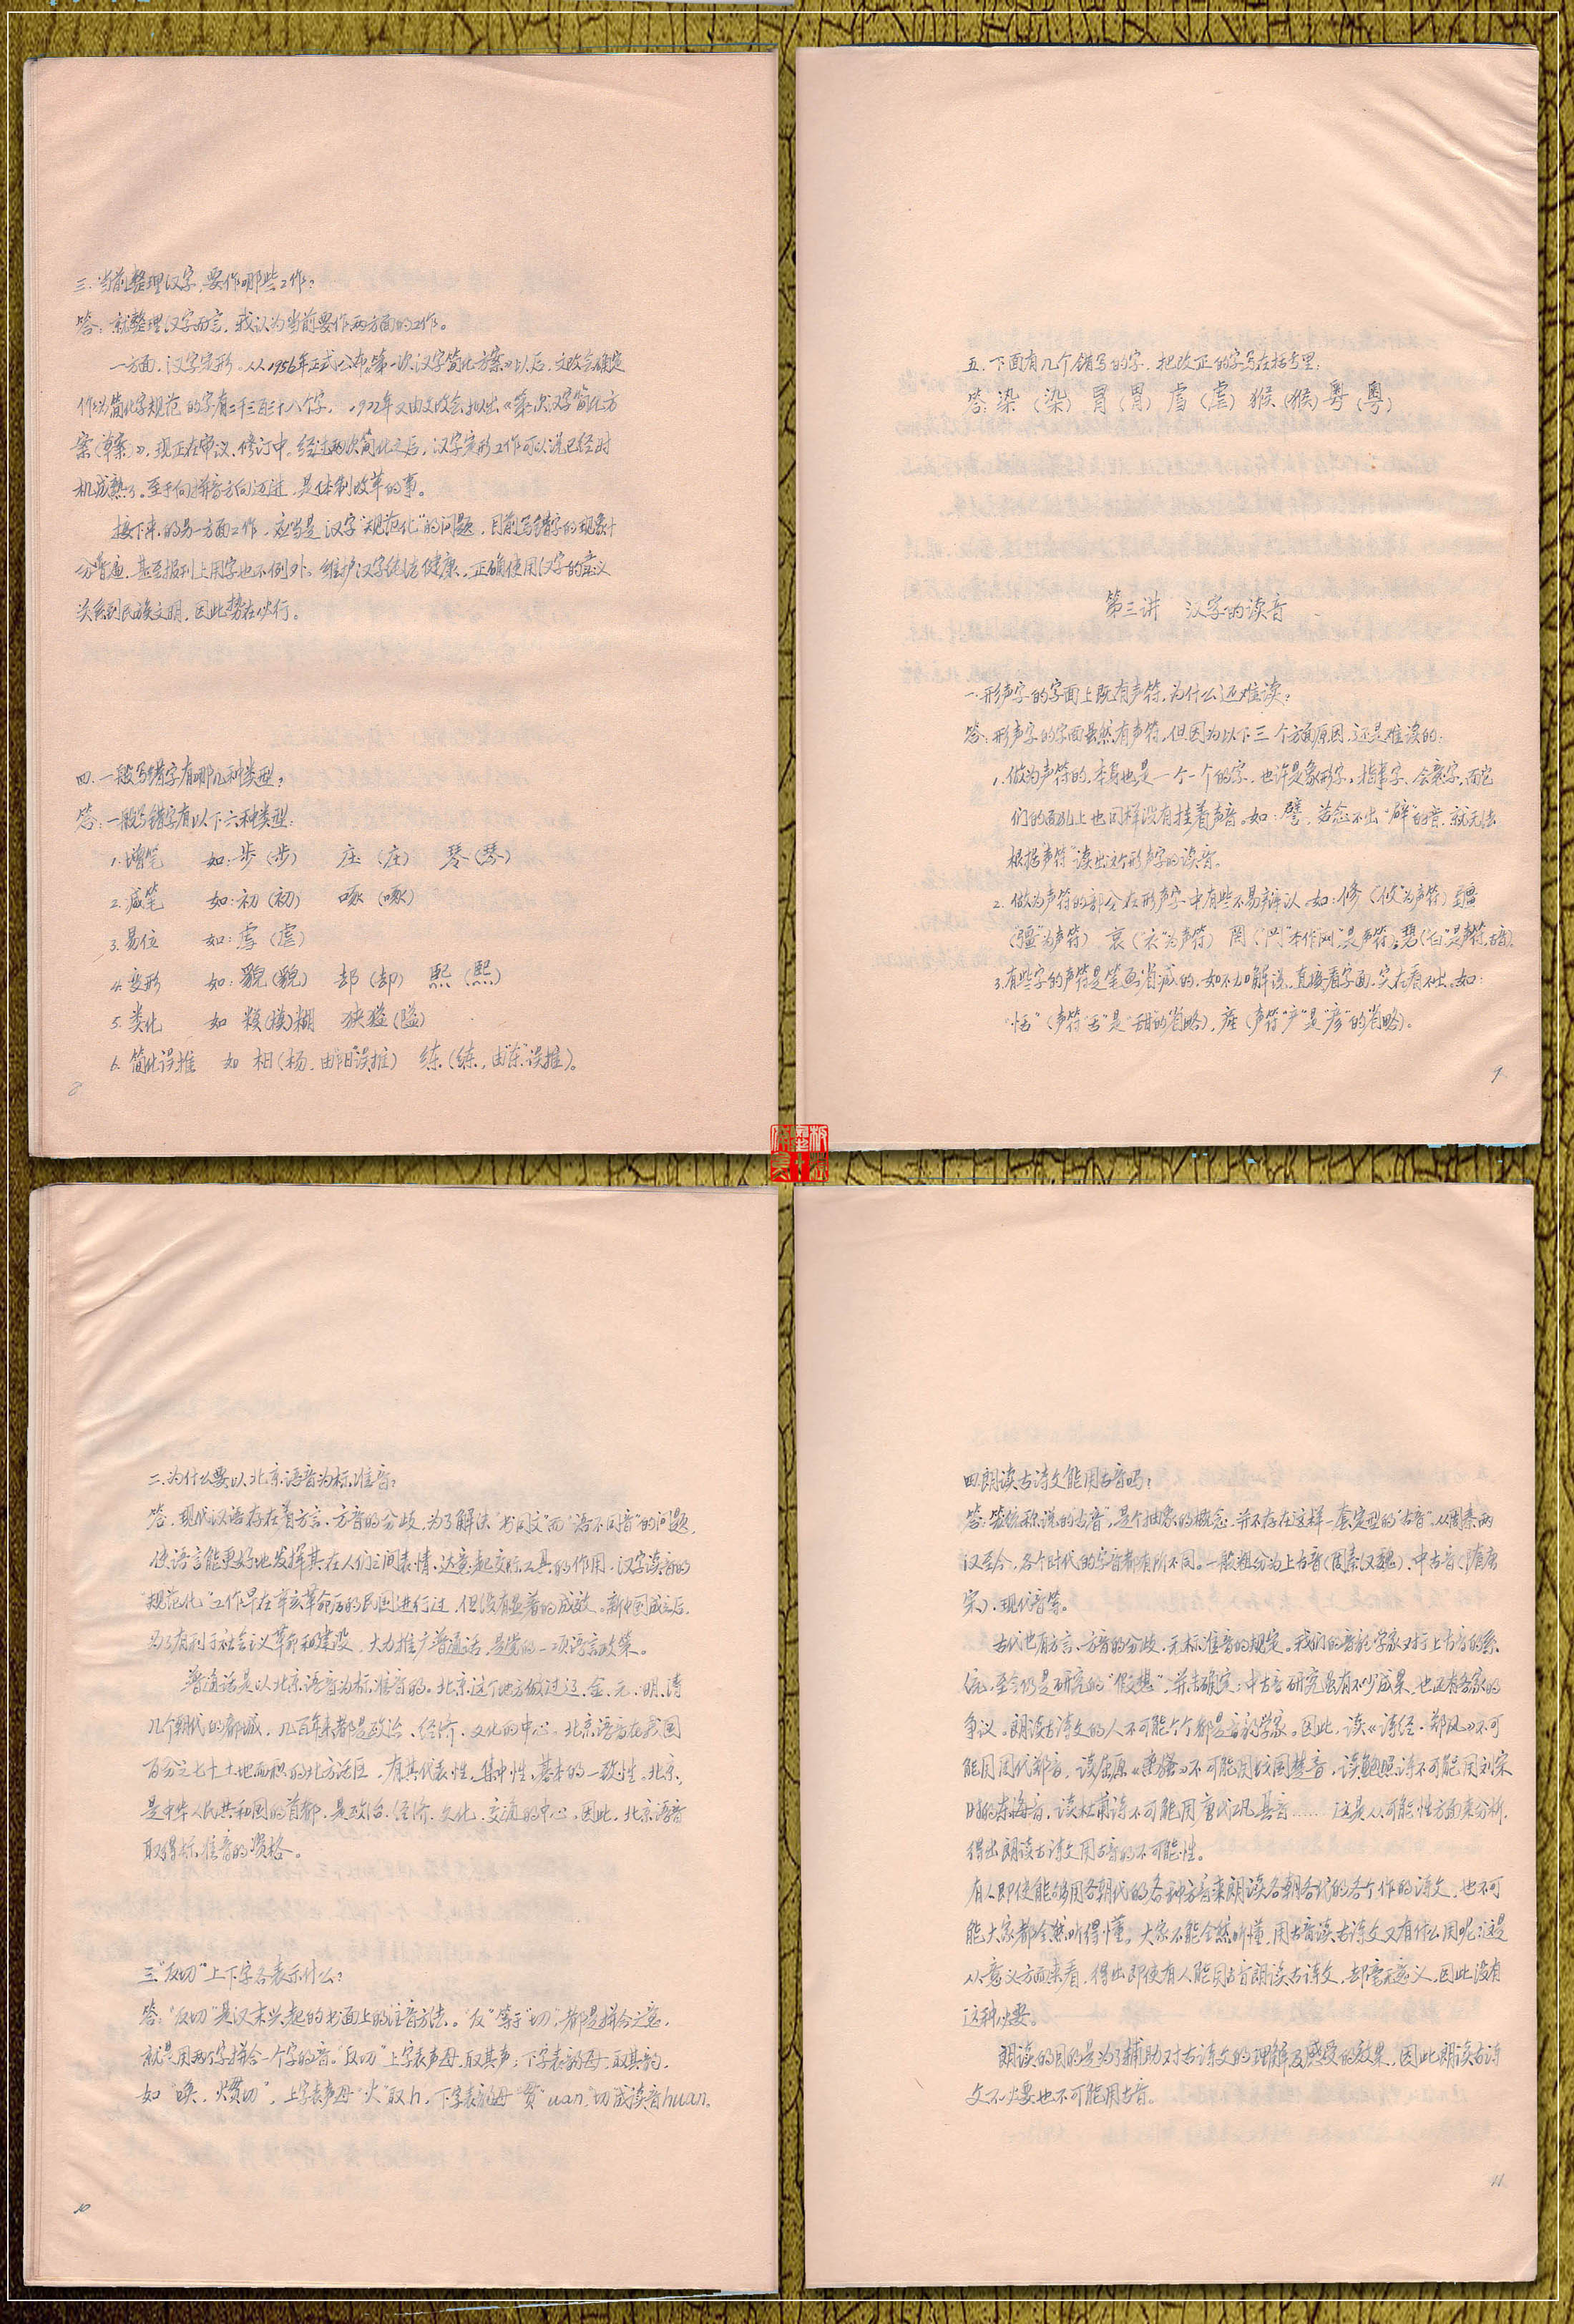 三.当前整理汉字,要作哪些工作?
答:就整理汉字而言,我认为当前要作两方面的工作。
一方面,汉字定形。从1956年正式公布《第一次汉字简化方案》以后,文改会确定
作为简化字规范的字有二千二百三十八个字。1977年又由文改会拟出《第二次汉字简化方
案(草案)》,现正在审议、修订中。经过两次简化之后,汉字定形工作可以说已经时
机成熟了。至于向拼音方向迈进,是体制改革的事。
接下来的另一方面工作,应当是汉字“规范化”的问题,目前写错字的现象十
分普遍,甚至报刊上用字也不例外。维护汉字纯洁健康,正确使用汉字的意义
关系到民族文明,因此势在必行。
四.一般写错字有哪几种类型?
答:一般写错字有以下六种类型:
1.增笔 如:步(步) 庄(庄) 琴(琴)
2.减笔 如:初(初) 啄(啄)
3.易位 如:虐(虐)
4.变形 如:貌(貌) 却(却) 熙(熙)
5.类化 如 糢(模)糊 狭獈(隘)
6.简化误推 如 相(杨,由“阳”误推) 练(练,由“东”误推)。
8
五.下面有几个错写的字,把改正的字写在括号里:
答:染(染) 冒(冒) 虐(虐) 猴(猴) 粤(粤)
第三讲 汉字的读音
一.形声字的字面上既有声符,为什么还难读?
答:形声字的字面虽然有声符,但因为以下三个方面原因,还是难读的:
1.做为声符的,本身也是一个一个的字,也许是象形字、指事字、会意字,而它
们的面孔上也同样没有挂着声音。如:譬,若念不出“辟”的音,就无法
根据“声符”读出这个形声字的读音。
2.做为声符的部分在形声字中有些不易辩认。如:修(“攸”为声符) 疆
(“彊”为声符) 哀(“衣”为声符) 罔(“冂”本作“网”是声符);碧(“白”是声符,古音)。
3.有些字的声符是笔画省减的,如不加解说,直接看字面,实在看不出。如:
“恬”(声符“舌”是“甜”的省略),产(声符“产”是“彦”的省略)。
9
二.为什么要以北京语音为标准音?
答:现代汉语存在着方言、方音的分歧,为了解决“书同文”而“语不同音”的问题,
使语言能更好地发挥其在人们之间表情、达意、起交际工具的作用,汉字读音的
“规范化”工作早在辛亥革命后的民国进行过,但没有显著的成效。新中国成立后,
为了有利于社会主义革命和建设,大力推广普通话,是党的一项语言政策。
普通话是以北京语音为标准音的。北京这个地方做过辽、金、元、明、清
几个朝代的都城,几百年来都是政治、经济、文化的中心。北京语音在我国
百分之七十土地面积的北方话区,有其代表性、集中性、基本的一致性。北京,
是中华人民共和国的首都,是政治、经济、文化、交流的中心。因此,北京语音
取得标准音的资格。
三.“反切”上下字各表示什么?
答:“反切”是汉末兴起的书面上的注音方法。“反”等于“切”,都是拼合之意,
就是用两个字拼合一个字的音。“反切”上字表声母,取其声;下字表韵母,取其韵。
如“唤,火贯切”,上字表声母“火”取h,下字表韵母“贯”uan,切成读音huan。
10
四.朗读古诗文能用古音吗?
答:笼统称说的“古音”,是个抽象的概念,并不存在这样一套定型的“古音”。从周秦两
汉至今,各个时代的字音都有所不同。一般粗分为上古音(周秦汉魏)、中古音(隋唐
宋)、现代音等。
古代也有方言、方音的分歧,无标准音的规定。我们的音韵学家对于上古音的系
统,至今仍是研究的“假想”,并未确定;中古音研究虽有不少成果,也还有各家的
争议。朗读古诗文的人不可能个个都是音韵学家。因此,读《诗经·郑风》不可
能用周代郑音,读屈原《离骚》不可能用战国楚音,读鲍照诗不可能用刘宋
时的东海音,读杜甫诗不可能用唐代巩县音……这是从可能性方面来分析,
得出朗读古诗文用古音的不可能性。
有人即使能够用各朝代的各种方音来朗读各朝各代的各个作的诗文,也不可
能大家都全然听得懂。大家不能全然听懂,用古音读古诗文又有什么用呢?这是
从意义方面来看,得出即使有人能用古音朗读古诗文,却毫无意义,因此没有
这种必要。
朗读的目的是为了辅助对古诗文的理解及感受的效果,因此朗读古诗
文不必要也不可能用古音。
11